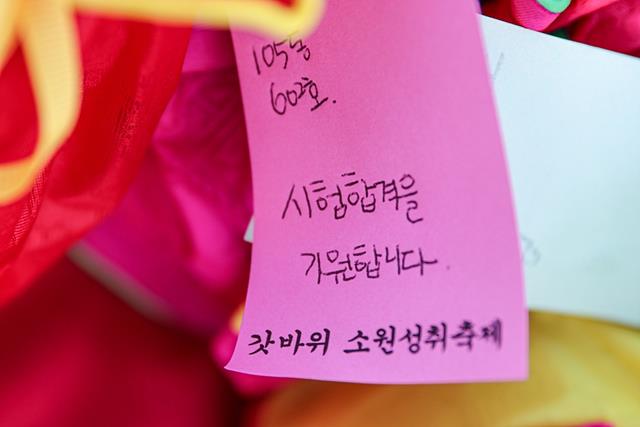 105동
602호.
시험합격을
기원합니다.
갓바위 소원성취축제